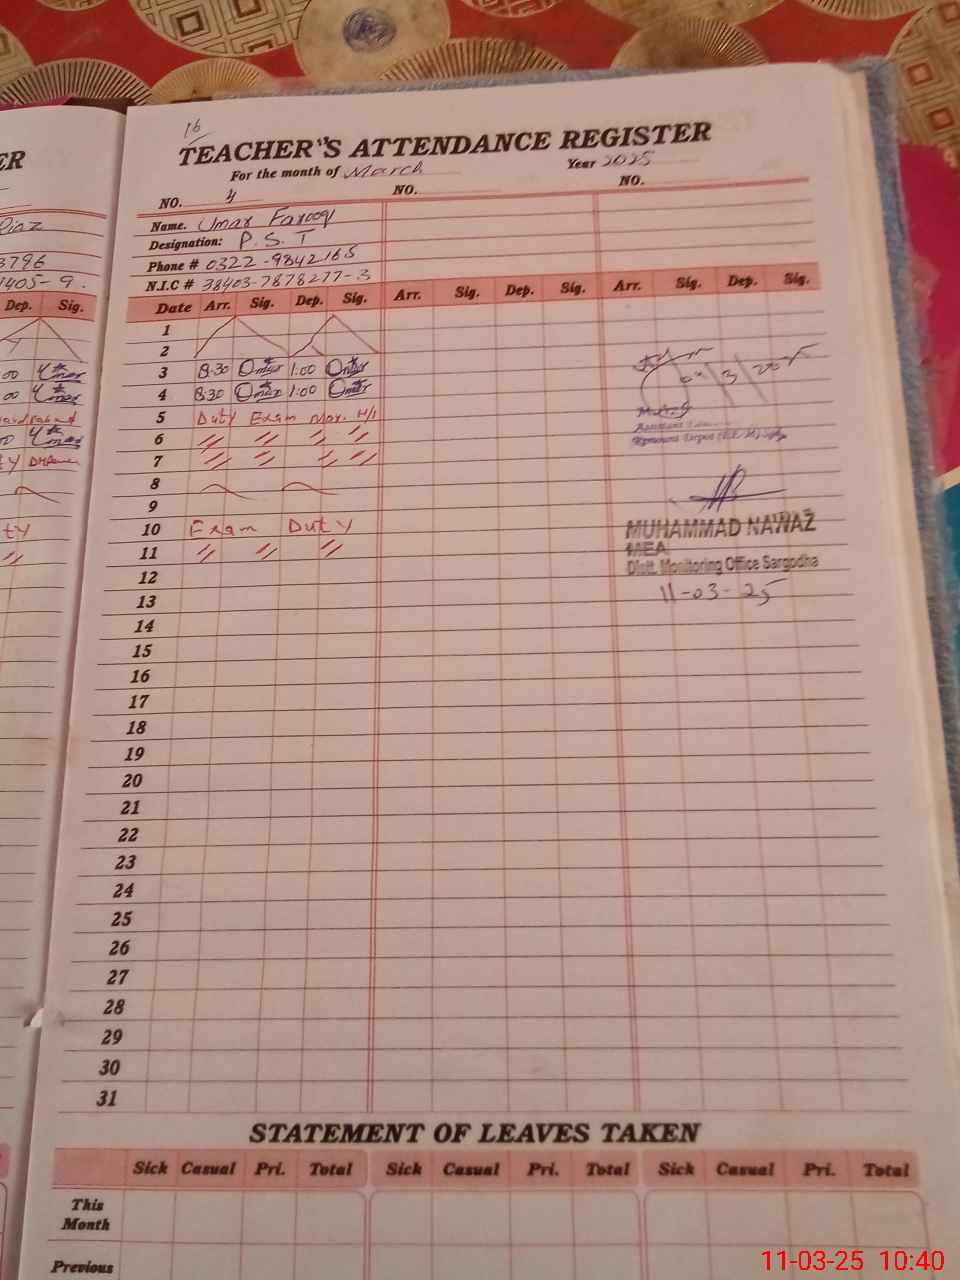 16
TEACHER'S ATTENDANCE REGISTER
For the month of March Year 2025
NO. 4 NO. NO.
Name. Umar Farooq
Designation: P.S.T
Phone # 0322-9842165
N.I.C # 38403-7878277-3
Date Arr. Sig. Dep. Sig. Arr. Sig. Dep. Sig. Arr. Sig. Dep. Sig.
1
2
3 8:30 Omar 1:00 Omar
4 8:30 Omar 1:00 Omar
5 Duty Exam
6 〃 〃 〃 〃
7 〃 〃 〃 〃
8
9
10 Exam Duty
11 〃 〃 〃
12
13
14
15
16
17
18
19
20
21
22
23
24
25
26
27
28
29
30
31
MUHAMMAD NAWAZ
MEA
Distt. Monitoring Office Sargodha
11-03-25
STATEMENT OF LEAVES TAKEN
Sick Casual Pri. Total Sick Casual Pri. Total Sick Casual Pri. Total
This Month
Previous
ER
3796
1405-9.
Dep. Sig.
11-03-25 10:40